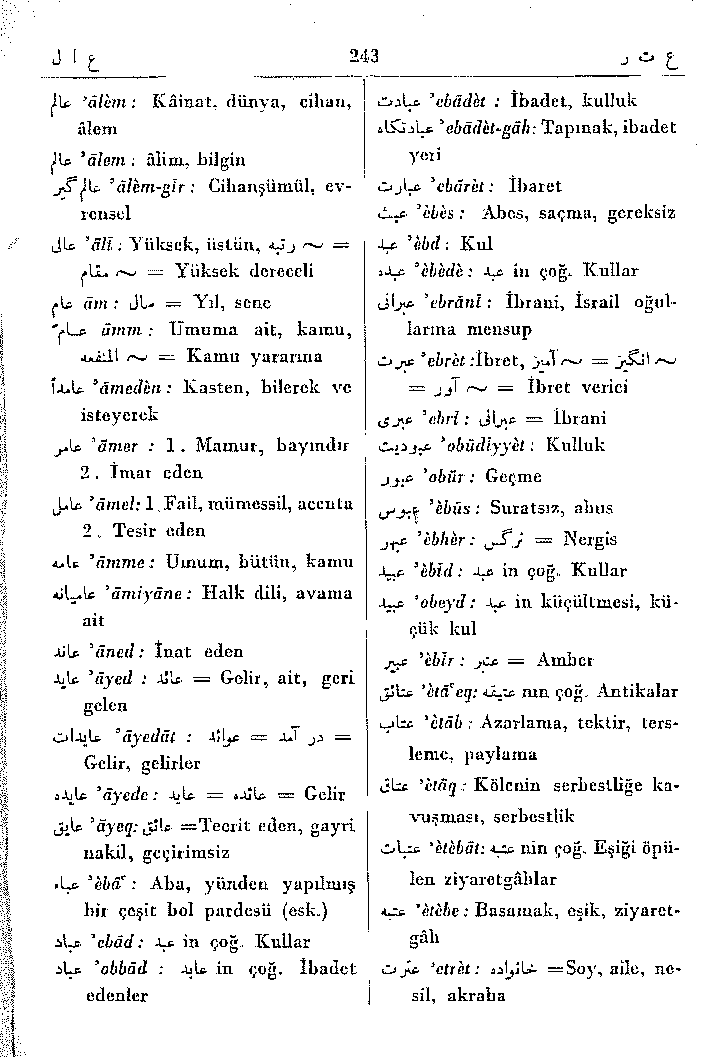 ع ا ل
243
ع ت ر
عالم ’ālèm : Kâinat, dünya, cihan,
âlem
عالم ’ālem : âlim, bilgin
عالم گیر ’ālèm-gîr : Cihanşümûl, ev-
rensel
عالی ’ālî : Yüksek, üstün, رتبه ~ =
مقام ~ = Yüksek dereceli
عام ām : سال = Yıl, sene
عام āmm : Umuma ait, kamu,
المنفعه ~ = Kamu yararına
عامداً ’āmedèn : Kasten, bilerek ve
isteyerek
عامر ’āmer : 1. Mamur, bayındır
2. İmar eden
عامل ’āmel: 1. Fail, mümessil, acenta
2. Tesir eden
عامه ’āmme : Umum, bütün, kamu
عامیانه ’āmiyāne : Halk dili, avama
ait
عاند ’āned : İnat eden
عاید ’āyed : عائد = Gelir, ait, geri
gelen
عایدات ’āyedāt : عوائد = در آمد =
Gelir, gelirler
عایده ’āyede : عاید = عائده = Gelir
عایق ’āyeq: عائق =Tecrit eden, gayri
nakil, geçirimsiz
عباء ’èbā’ : Aba, yünden yapılmış
bir çeşit bol pardesü (esk.)
عباد ’ebād : عبد in çoğ. Kullar
عباد ’obbād : عابد in çoğ. İbadet
edenler
عبادت ’ebādèt : İbadet, kulluk
عبادتگاه ’ebādèt-gāh: Tapınak, ibadet
yeri
عبارت ’ebārèt : İbaret
عبث ’èbès : Abes, saçma, gereksiz
عبد ’èbd : Kul
عبده ’èbède : عبد in çoğ. Kullar
عبرانی ’ebrānî : İbrani, İsrail oğul-
larına mensup
عبرت ’ebrèt :İbret, آمیز ~ = انگیز ~
= آور ~ = İbret verici
عبری ’ebrî : عبرانی = İbrani
عبودیت ’obūdiyyèt : Kulluk
عبور ’obūr : Geçme
عبوس ’èbūs : Suratsız, abus
عبهر ’èbhèr : نرگس = Nergis
عبید ’èbîd : عبد in çoğ. Kullar
عبید ’obeyd : عبد in küçültmesi, kü-
çük kul
عبیر ’èbîr : عنبر = Amber
عتائق ’ètā’eq: عتیقه nın çoğ. Antikalar
عتاب ’ètāb : Azarlama, tektir, ters-
leme, paylama
عتاق ’ètāq : Kölenin serbestliğe ka-
vuşması, serbestlik
عتبات ’ètèbāt: عتبه nin çoğ. Eşiği öpü-
len ziyaretgâhlar
عتبه ’ètèbe : Basamak, eşik, ziyaret-
gâh
عترت ’etrèt : خانواده =Soy, aile, ne-
sil, akraba